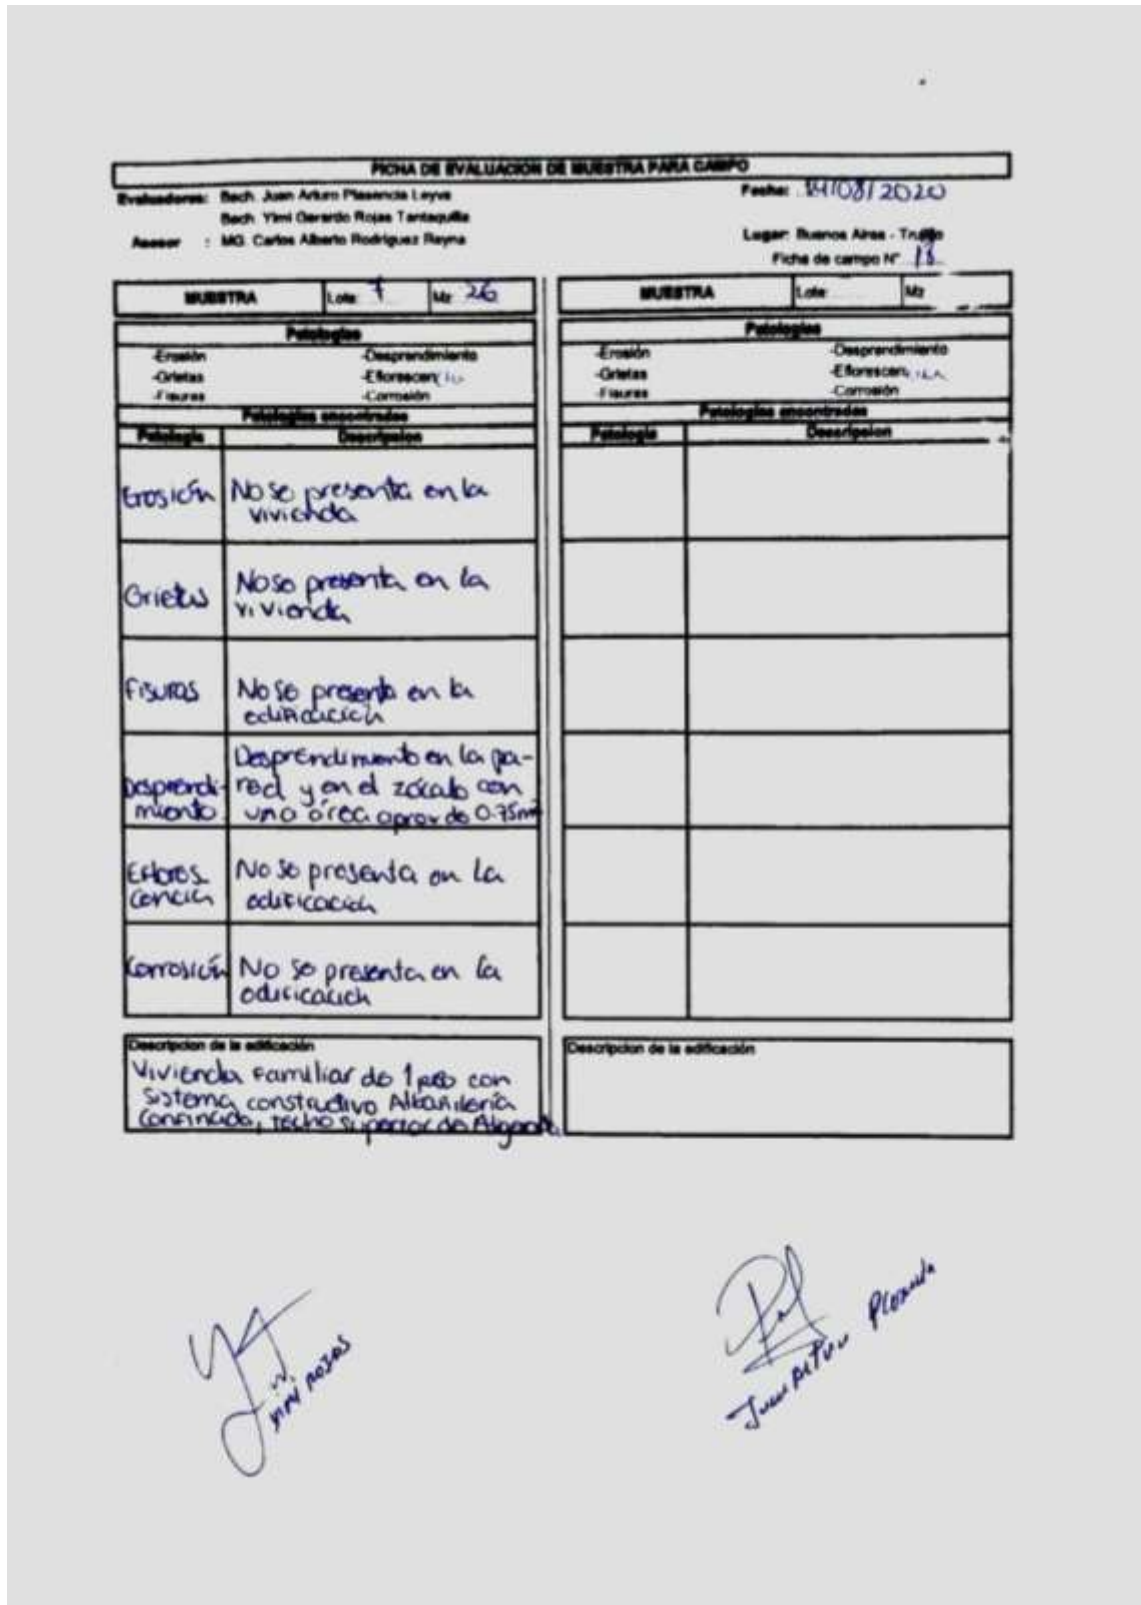 FICHA DE EVALUACION DE MUESTRA PARA CAMPO
Evaluadores: Bach. Juan Arturo Plasencia Leyva
Fecha: 14/08/2020
Bach. Yimi Gerardo Rojas Tantaquilla
Asesor : MG. Carlos Alberto Rodriguez Reyna
Lugar: Buenos Aires - Trujillo
Ficha de campo N°
MUESTRA Lote: 7 Mz: 26
Patologias
-Erosión -Desprendimiento
-Grietas -Eflorescencia
-Fisuras -Corrosión
Patologias encontradas
Patologia Descripcion
Erosión No se presenta en la
vivienda
Grietas No se presenta en la
vivienda
Fisuras No se presenta en la
edificación
Desprendimiento en la pa-
Desprendi- red y en el zócalo con
miento una área aprox de 0.75m²
Eflores No se presenta en la
cencia edificación
Corrosión No se presenta en la
edificación
Descripcion de la edificación
Vivienda Familiar de 1 piso con
sistema constructivo Albañilería
Confinada, techo superior de Aligerado
MUESTRA Lote: Mz
Patologias
-Erosión -Desprendimiento
-Grietas -Eflorescencia
-Fisuras -Corrosión
Patologias encontradas
Patologia Descripcion
Descripcion de la edificación
YIMI ROJAS
Juan Arturo Plasencia